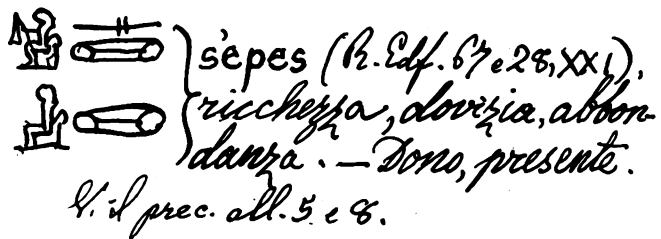 s'epes (R. Edf. 67 e 28, XXI),
ricchezza, dovizia, abbon-
danza. — Dono, presente.
V. il prec. all. 5 e 8.